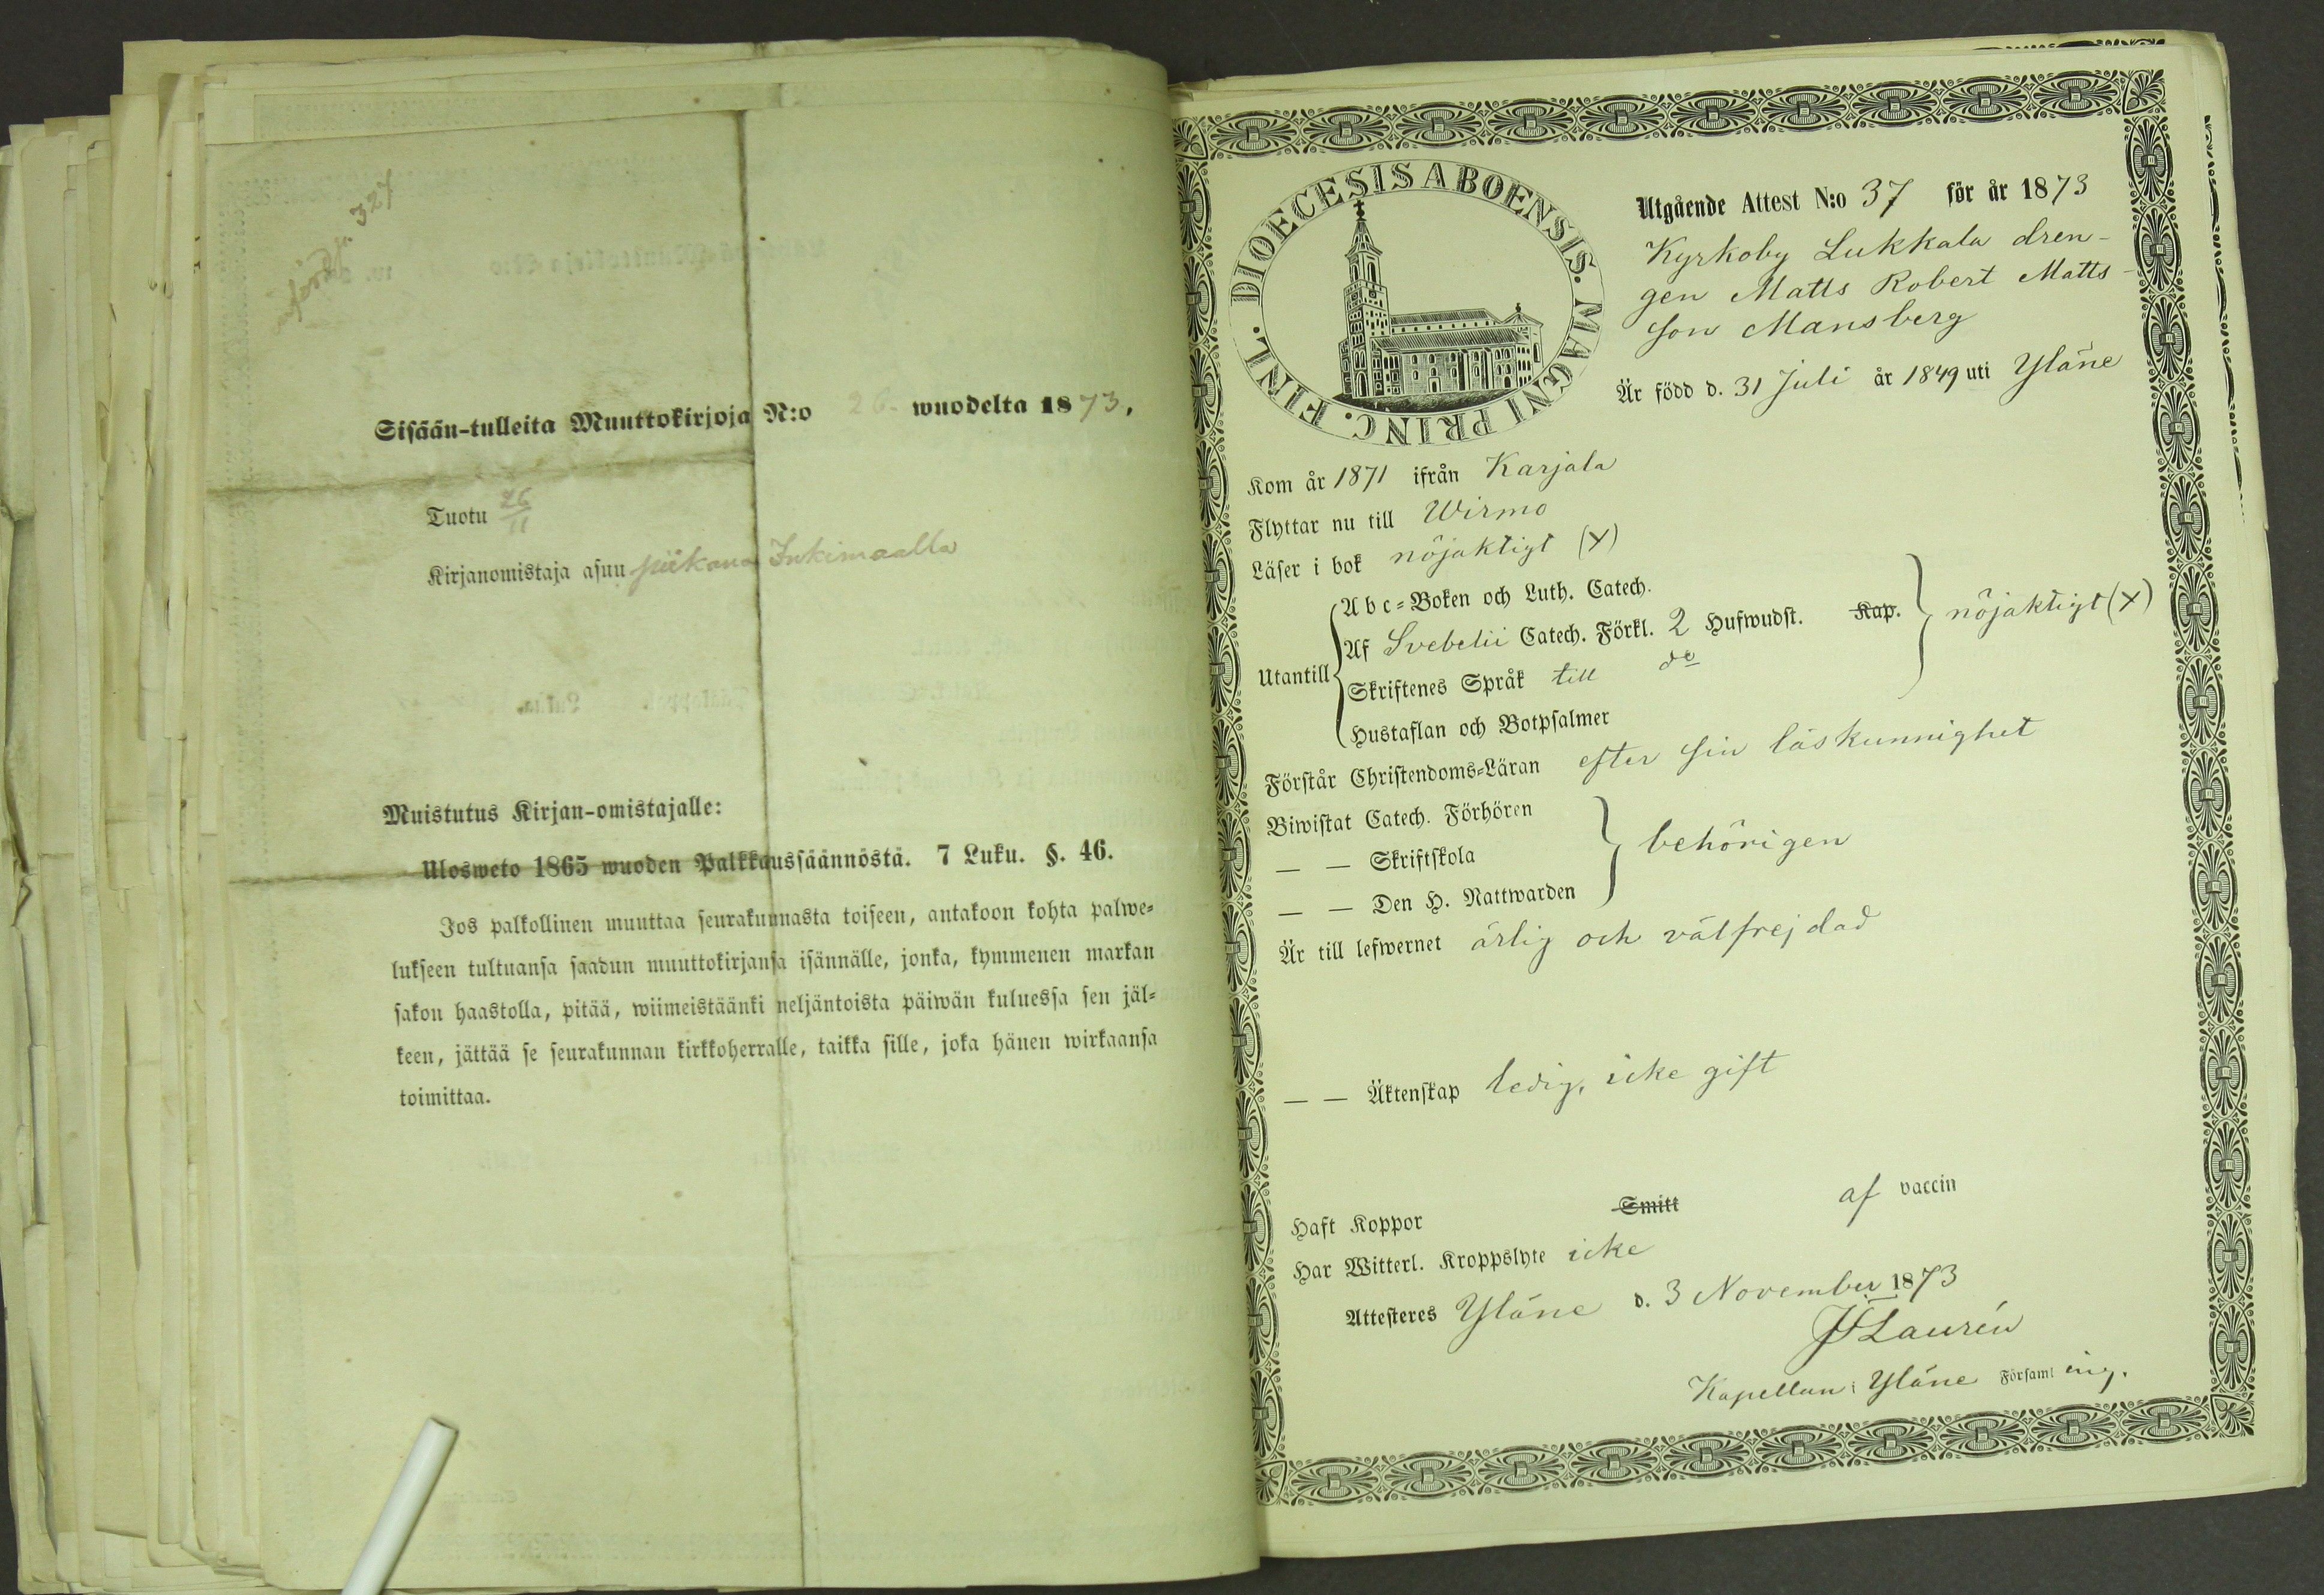 införd p. 327
Sisään-tulleita Muuttokirjoja N:o 26. wuodelta 1873.
Tuotu 26/11
Kirjanomistaja asuu piikana Inkimaalla
Muistutus Kirjan-omistajalle:
Ulosweto 1865 wuoden Palkkaussäännöstä. 7 Luku. §. 46.
Jos palkollinen muuttaa seurakunnasta toiseen, antakoon kohta palwe-
lukseen tultuansa saadun muuttokirjansa isännälle, jonka, kymmenen markan
sakon haastolla, pitää, wiimeistäänki neljäntoista päiwän kuluessa sen jäl-
keen, jättää se seurakunnan kirkkoherralle, taikka sille, joka hänen wirkaansa
toimittaa.
DIOECESIS ABOENSIS. MAGNI PRINC. FINL.
Utgående Attest N:o 37 för år 1873
Kyrkoby Lukkala dren-
gen Matts Robert Matts-
son Mansberg
Är född d. 31 Juli år 1849 uti Yläne
Kom år 1871 ifrån Karjala
Flyttar nu till Wirmo
Läser i bok nöjaktigt (x)
Utantill
Abc-Boken och Luth. Catech.
Af Svebelii Catech. Förkl. 2 Hufwudst. Kap.
Skriftenes Språk till do
Hustaflan och Botpsalmer
nöjaktigt (x)
Förstår Christendoms-Läran efter sin läskunnighet
Biwistat Catech. Förhören
— — Skriftskola
— — Den H. Nattwarden
behörigen
Är till lefwernet ärlig och välfrejdad
— — Äktenskap ledig, icke gift
Haft Koppor Smitt af vaccin
Har Witterl. Kroppslyte icke
Attesteres Yläne d. 3 November 1873
Laurén
Kapellan i Yläne Församling.